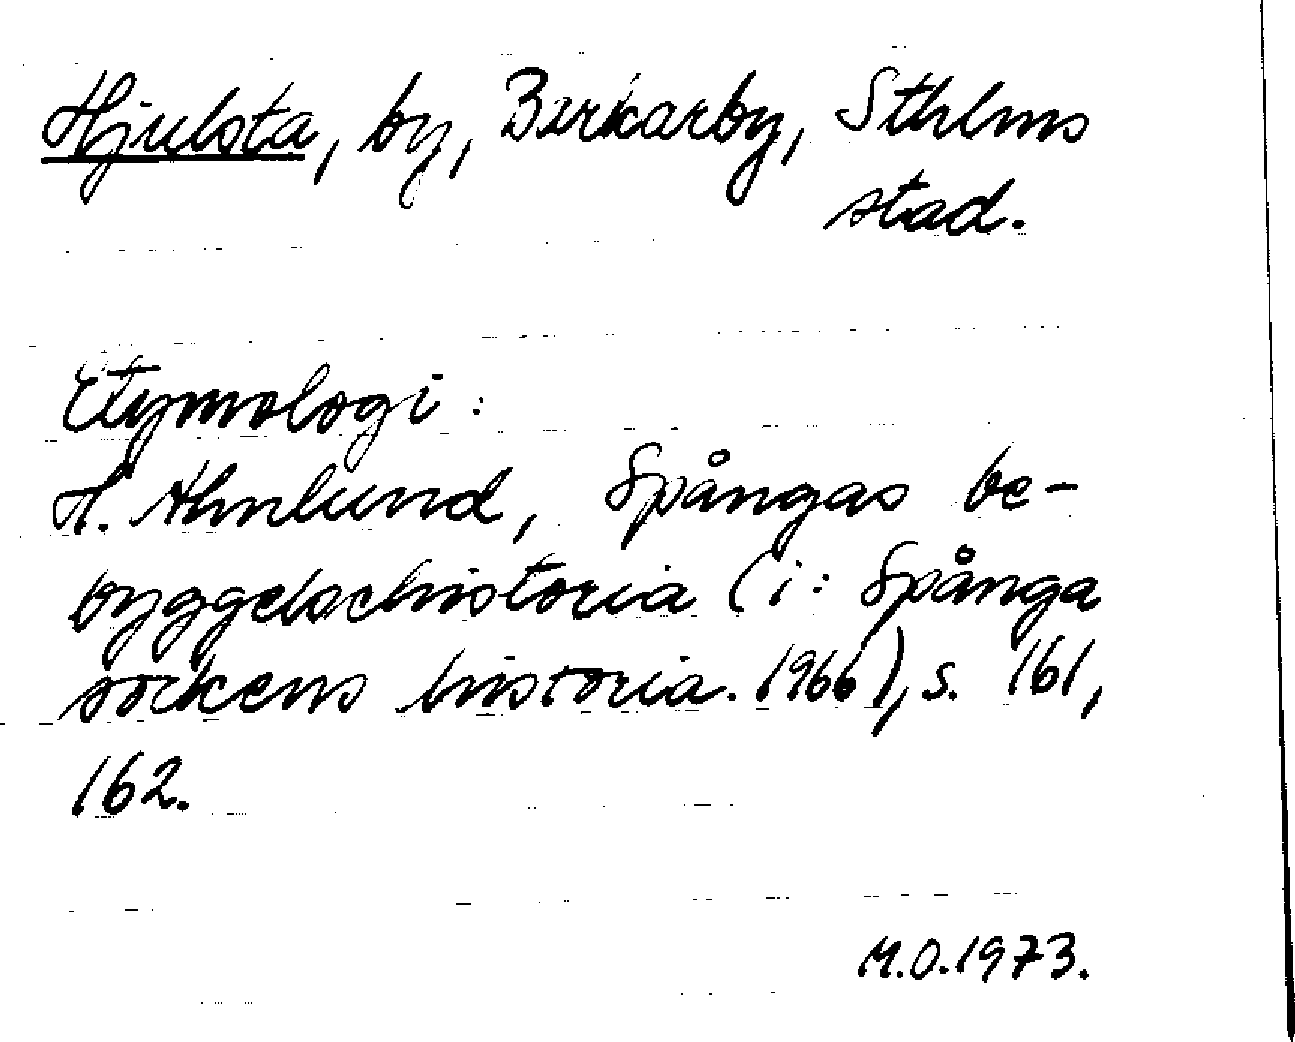 Hjulsta, by, Barkarby, Sthlms
stad.
Etymologi:
H. Ahnlund, Spångas be-
byggelsehistoria (i: Spånga
sockens historia. 1966), s. 161,
162.
M.O.1973.